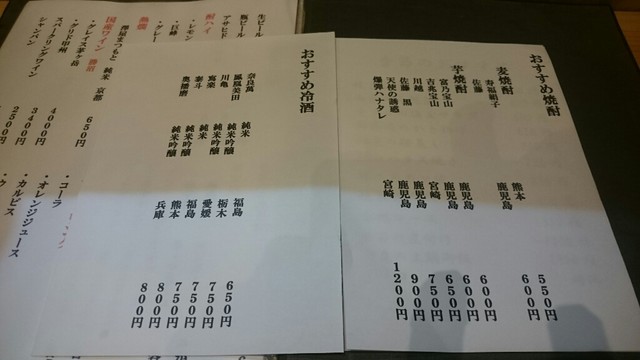 おすすめ焼酎
麦焼酎
寿福絹子 熊本 550円
佐藤 鹿児島 600円
芋焼酎
富乃宝山 鹿児島 600円
吉兆宝山 鹿児島 600円
川越 宮崎 650円
佐藤 黒 鹿児島 750円
天使の誘惑 鹿児島 900円
爆弾ハナタレ 宮崎 1200円
おすすめ冷酒
奈良萬 純米 福島 650円
鳳凰美田 純米吟醸 栃木 750円
川亀 純米吟醸 愛媛 750円
寫楽 純米 福島 750円
泰斗 純米吟醸 熊本 800円
奥播磨 純米吟醸 兵庫 800円
生ビール
瓶ビール
アサヒド
酎ハイ
・レモン
・巨峰
・グレー
熱燗
澤屋まつもと 純米 京都 650円
国産ワイン 勝沼
・グレイス茅ヶ岳 400円
・グリド甲州 3400円
スパークリングワイン 2500円
シャンパン
・コーラ
・オレンジジュース
・カルピス
・ウ